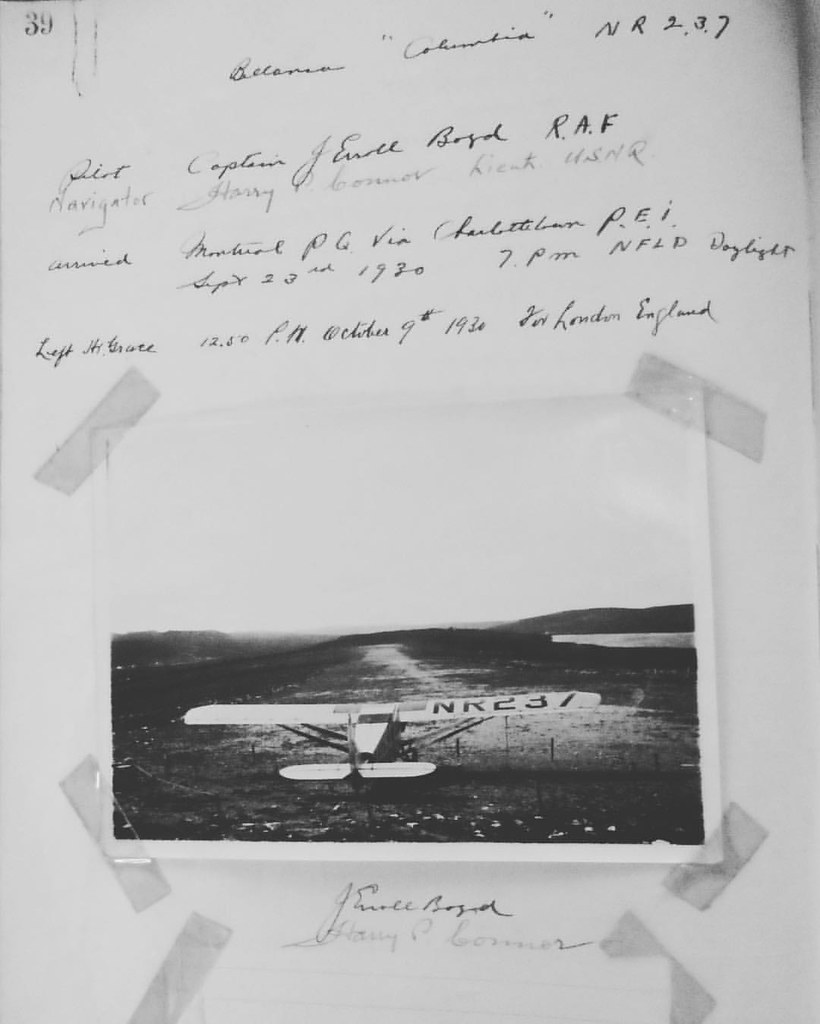 39
Bellanca "Columbia" NR 237
Pilot Captain J Erroll Boyd R.A.F
Navigator Harry P. Connor Lieut. USNR.
arrived Montreal P Q. Via Charlottetown P.E.I.
Sept 23rd 1930 7.Pm NFLD Daylight
Left Hr. Grace 12.50 P.M. October 9th 1930 For London England
NR237
J Erroll Boyd
Harry P Connor